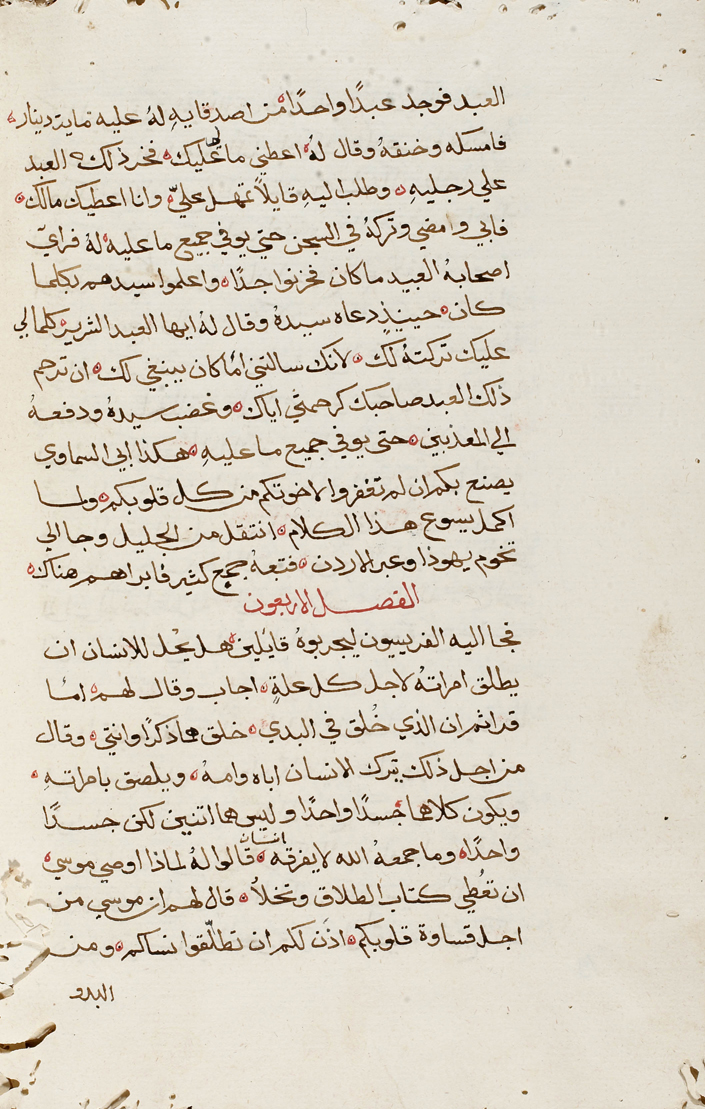 العبد فوجد عبدًا واحدًا من اصدقايهِ لهُ عليه مايتر دينار
فامسكه وخنقهُ وقال لهُ اعطني ما لي عليك فخر ذلك العبد
علي رجليهِ وطلب اليهِ قايلاً تمهل عليّ وانا اعطيك مالك
فابي وامضي وتركهُ في السجن حتي يوفي جميع ما عليه لهُ فراي
اصحابهُ العبيد ما كان فحزنوا جدًا واعلموا سيدهم بكلما
كان حينيذٍ دعاه سيدهُ وقال لهُ ايها العبد الشرير كلما لي
عليك تركتهُ لك لانك سالتني اما كان ينبغي لك ان ترحم
ذلك العبد صاحبك كرحمتي اياك وغضب سيدهُ ودفعهُ
الي المعذبين حتى يوفي جميع ما عليهِ هكذا ابي السماوي
يصنع بكم ان لم تغفروا لاخوتكم من كل قلوبكم ولما
اكمل يسوع هذا الكلام انتقل من الجليل وجا الي
تخوم يهوذا وعبر الاردن فتبعهُ جمع كثير فابراهم هناك
الفصل الاربعون
فجا اليه الفريسيون ليجربوهُ قايلين هل يحل للانسان ان
يطلق امراتهُ لاجل كل علةٍ اجاب وقال لهم اما
قراتم ان الذي خُلق في البدي خلقهما ذكرًا وانثي وقال
من اجل ذلك يترك الانسان اباه وامهُ ويلصق بامراتهِ
ويكون كلاهما جسدًا واحدًا وليس هما اثنين لكن جسدًا
واحدًا وما جمعهُ الله لا يفرقه انسان قالوا لهُ لماذا اوصي موسي
ان تعُطي كتاب الطلاق وتخلاُ قال لهم ان موسي من
اجل قساوة قلوبكم اذن لكم ان تطلّقوا نساكم ومن
البدو